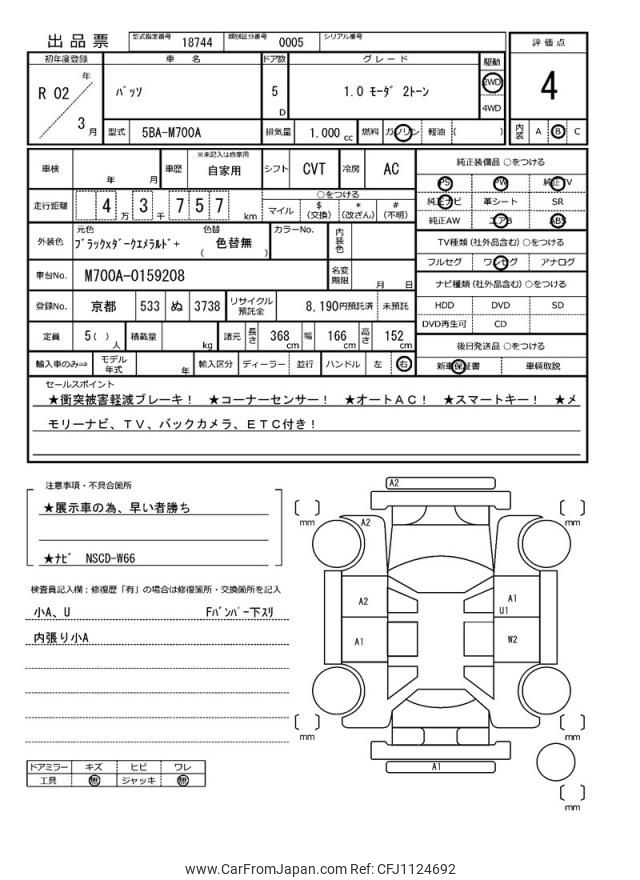 出品票 型式指定番号 18744 類別区分番号 0005 シリアル番号
評価点
4
初年度登録 車名 ドア数 グレード 駆動
R 02 年 3 月 パッソ 5 D 1.0 モーダ 2トーン 2WD
4WD
型式 5BA-M700A 排気量 1,000 cc 燃料 ガソリン 軽油 ( ) 内装 A B C
車検 年 月 車歴 ※未記入は自家用 自家用 シフト CVT 冷房 AC
純正装備品 ○をつける
PS PW 純正TV
純正ナビ 革シート SR
純正AW エアB ABS
走行距離 4 万 3 千 7 5 7 km
○をつける
マイル $ (交換) * (改ざん) # (不明)
外装色 元色 ブラック×ダークエメラルド+ 色替 ( 色替無 ) カラーNo. 内装色
TV種類 (社外品含む) ○をつける
フルセグ ワンセグ アナログ
車台No. M700A-0159208 名変期限 月 日
ナビ種類 (社外品含む) ○をつける
HDD DVD SD
DVD再生可 CD
登録No. 京都 533 ぬ 3738 リサイクル預託金 8,190円預託済 未預託
定員 5 ( ) 人 積載量 kg 諸元 長さ 368 cm 幅 166 cm 高さ 152 cm
後日発送品 ○をつける
新車保証書 車輌取説
輸入車のみ⇒ モデル年式 年 輸入区分 ディーラー 並行 ハンドル 左 右
セールスポイント
★衝突被害軽減ブレーキ! ★コーナーセンサー! ★オートAC! ★スマートキー! ★メ
モリーナビ、TV、バックカメラ、ETC付き!
注意事項・不具合箇所
★展示車の為、早い者勝ち
★ナビ NSCD-W66
検査員記入欄:修復歴「有」の場合は修復箇所・交換箇所を記入
小A、U Fバンパー下スリ
内張り小A
ドアミラー キズ ヒビ ワレ
工具 無 ジャッキ 無
A2
mm
mm
A2
A2
A1
U1
A1
W2
mm
mm
A1
mm
www.CarFromJapan.com Ref: CFJ1124692